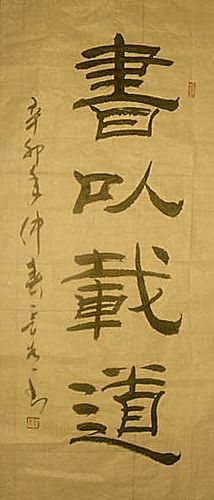 書以載道
辛卯年仲春